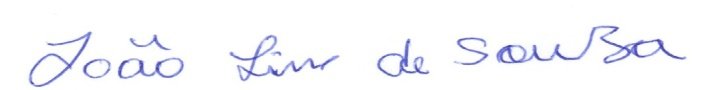 João Lins de Souza